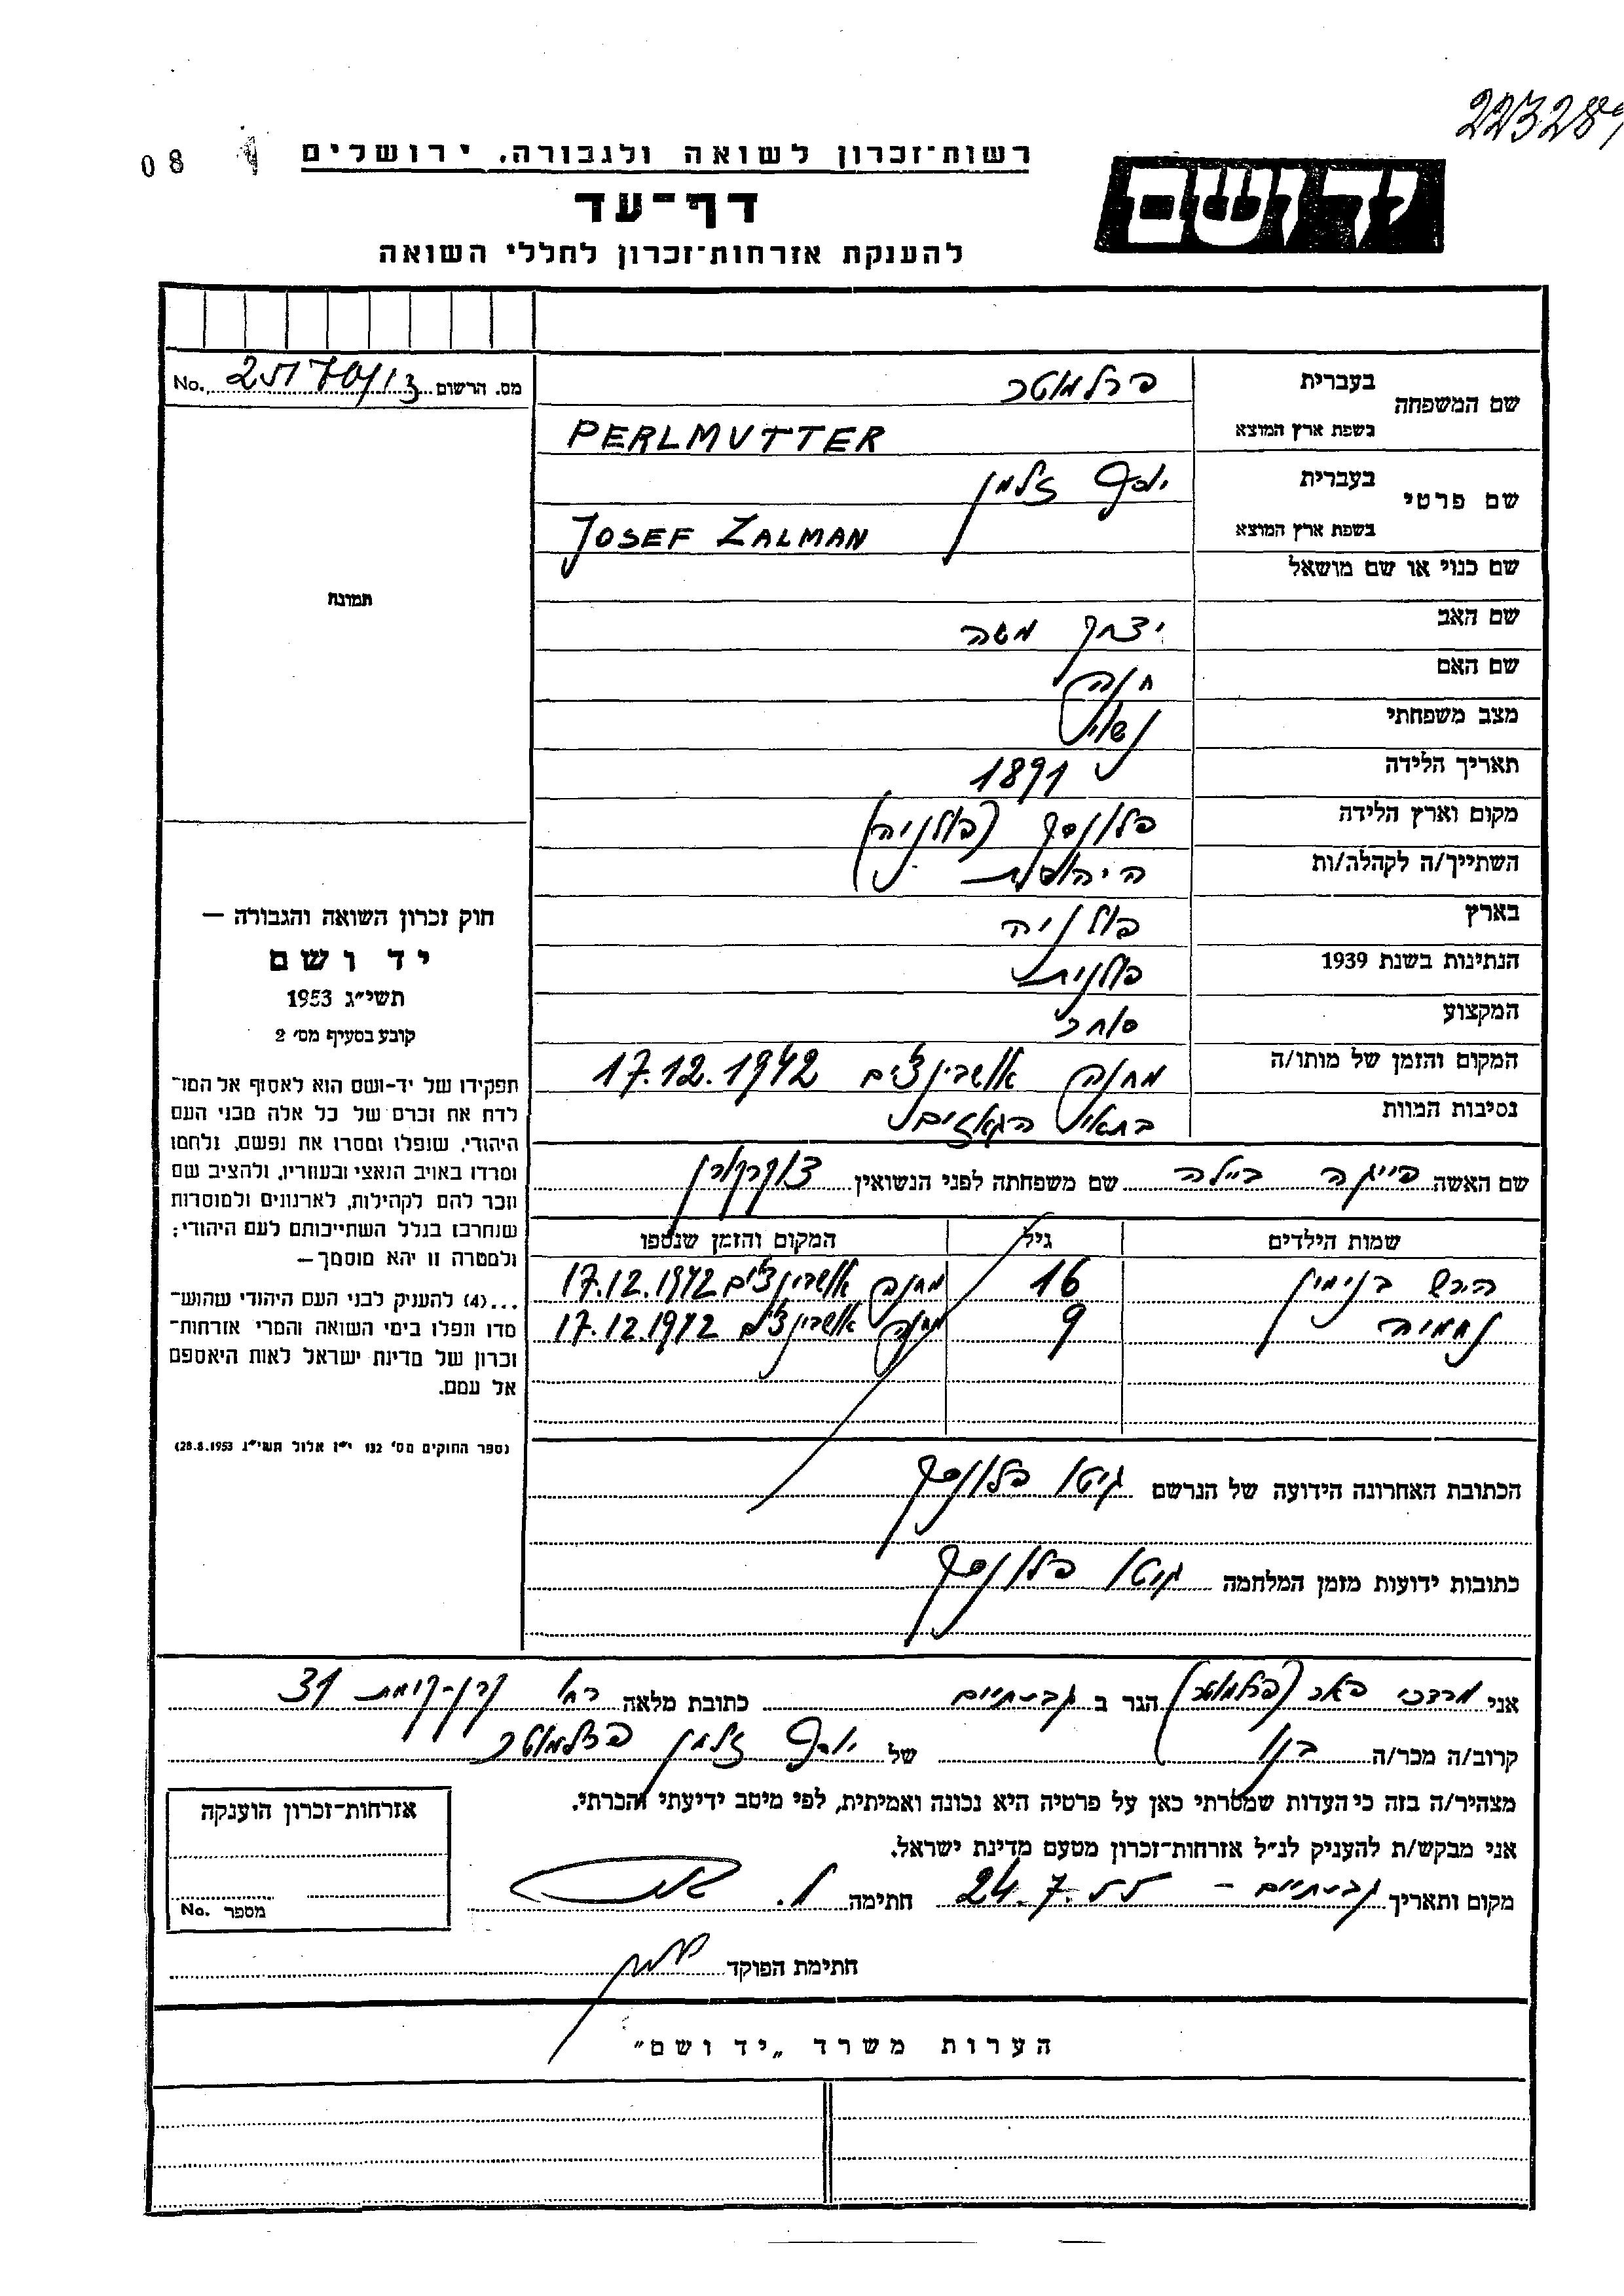 223289
08
רשות־זכרון לשואה ולגבורה, ירושלים
יד ושם
דף־עד
להענקת אזרחות־זכרון לחללי השואה
מס. הרשום No.
שם המשפחה
בעברית פרלמוטר
בשפת ארץ המוצא PERLMUTTER
שם פרטי
בעברית יוסף זלמן
בשפת ארץ המוצא JOSEF ZALMAN
שם כנוי או שם מושאל
תמונה
שם האב יצחק משה
שם האם חנה
מצב משפחתי נשוי
תאריך הלידה 1891
מקום וארץ הלידה פלונסק (פולניה)
השתייך/ה לקהלה/ות היהודית
בארץ פולניה
הנתינות בשנת 1939 פולנית
המקצוע סוחר
המקום והזמן של מותו/ה מחנה אושבינצים 17.12.1942
נסיבות המוות בתאי הגאזים
חוק זכרון השואה והגבורה —
יד ושם
תשי״ג 1953
קובע בסעיף מס׳ 2
תפקידו של יד-ושם הוא לאסוף אל המו־
לדת את זכרם של כל אלה מבני העם
היהודי, שנפלו ומסרו את נפשם, נלחמו
ומרדו באויב הנאצי ובעוזריו, ולהציב שם
וזכר להם לקהילות, לארגונים ולמוסדות
שנחרבו בגלל השתייכותם לעם היהודי;
ולמטרה זו יהא מוסמך—
...(4) להעניק לבני העם היהודי שהוש־
מדו ונפלו בימי השואה והמרי אזרחות־
זכרון של מדינת ישראל לאות היאספם
אל עמם.
(ספר החוקים מס׳ 132 י״ז אלול תשי״ג 28.8.1953)
שם האשה פייגה ביילה שם משפחתה לפני הנשואין
שמות הילדים גיל המקום והזמן שנספו
הירש בנימין 16 מחנה אושבינצים 17.12.1942
נחמיה 9 מחנה אושבינצים 17.12.1942
הכתובת האחרונה הידועה של הנרשם גיטו פלונסק
כתובות ידועות מזמן המלחמה גיטו פלונסק
אני מרדכי פאר (פרלמוטר) הגר ב גבעתיים כתובת מלאה רח׳ קרן-קימת 31
קרוב/ה מכר/ה בנו של יוסף זלמן פרלמוטר
מצהיר/ה בזה כי העדות שמסרתי כאן על פרטיה היא נכונה ואמיתית, לפי מיטב ידיעתי והכרתי.
אני מבקש/ת להעניק לנ״ל אזרחות־זכרון מטעם מדינת ישראל.
מקום ותאריך גבעתיים - 24.7.55 חתימה
אזרחות־זכרון הוענקה
מספר No.
חתימת הפוקד
הערות משרד „יד ושם״